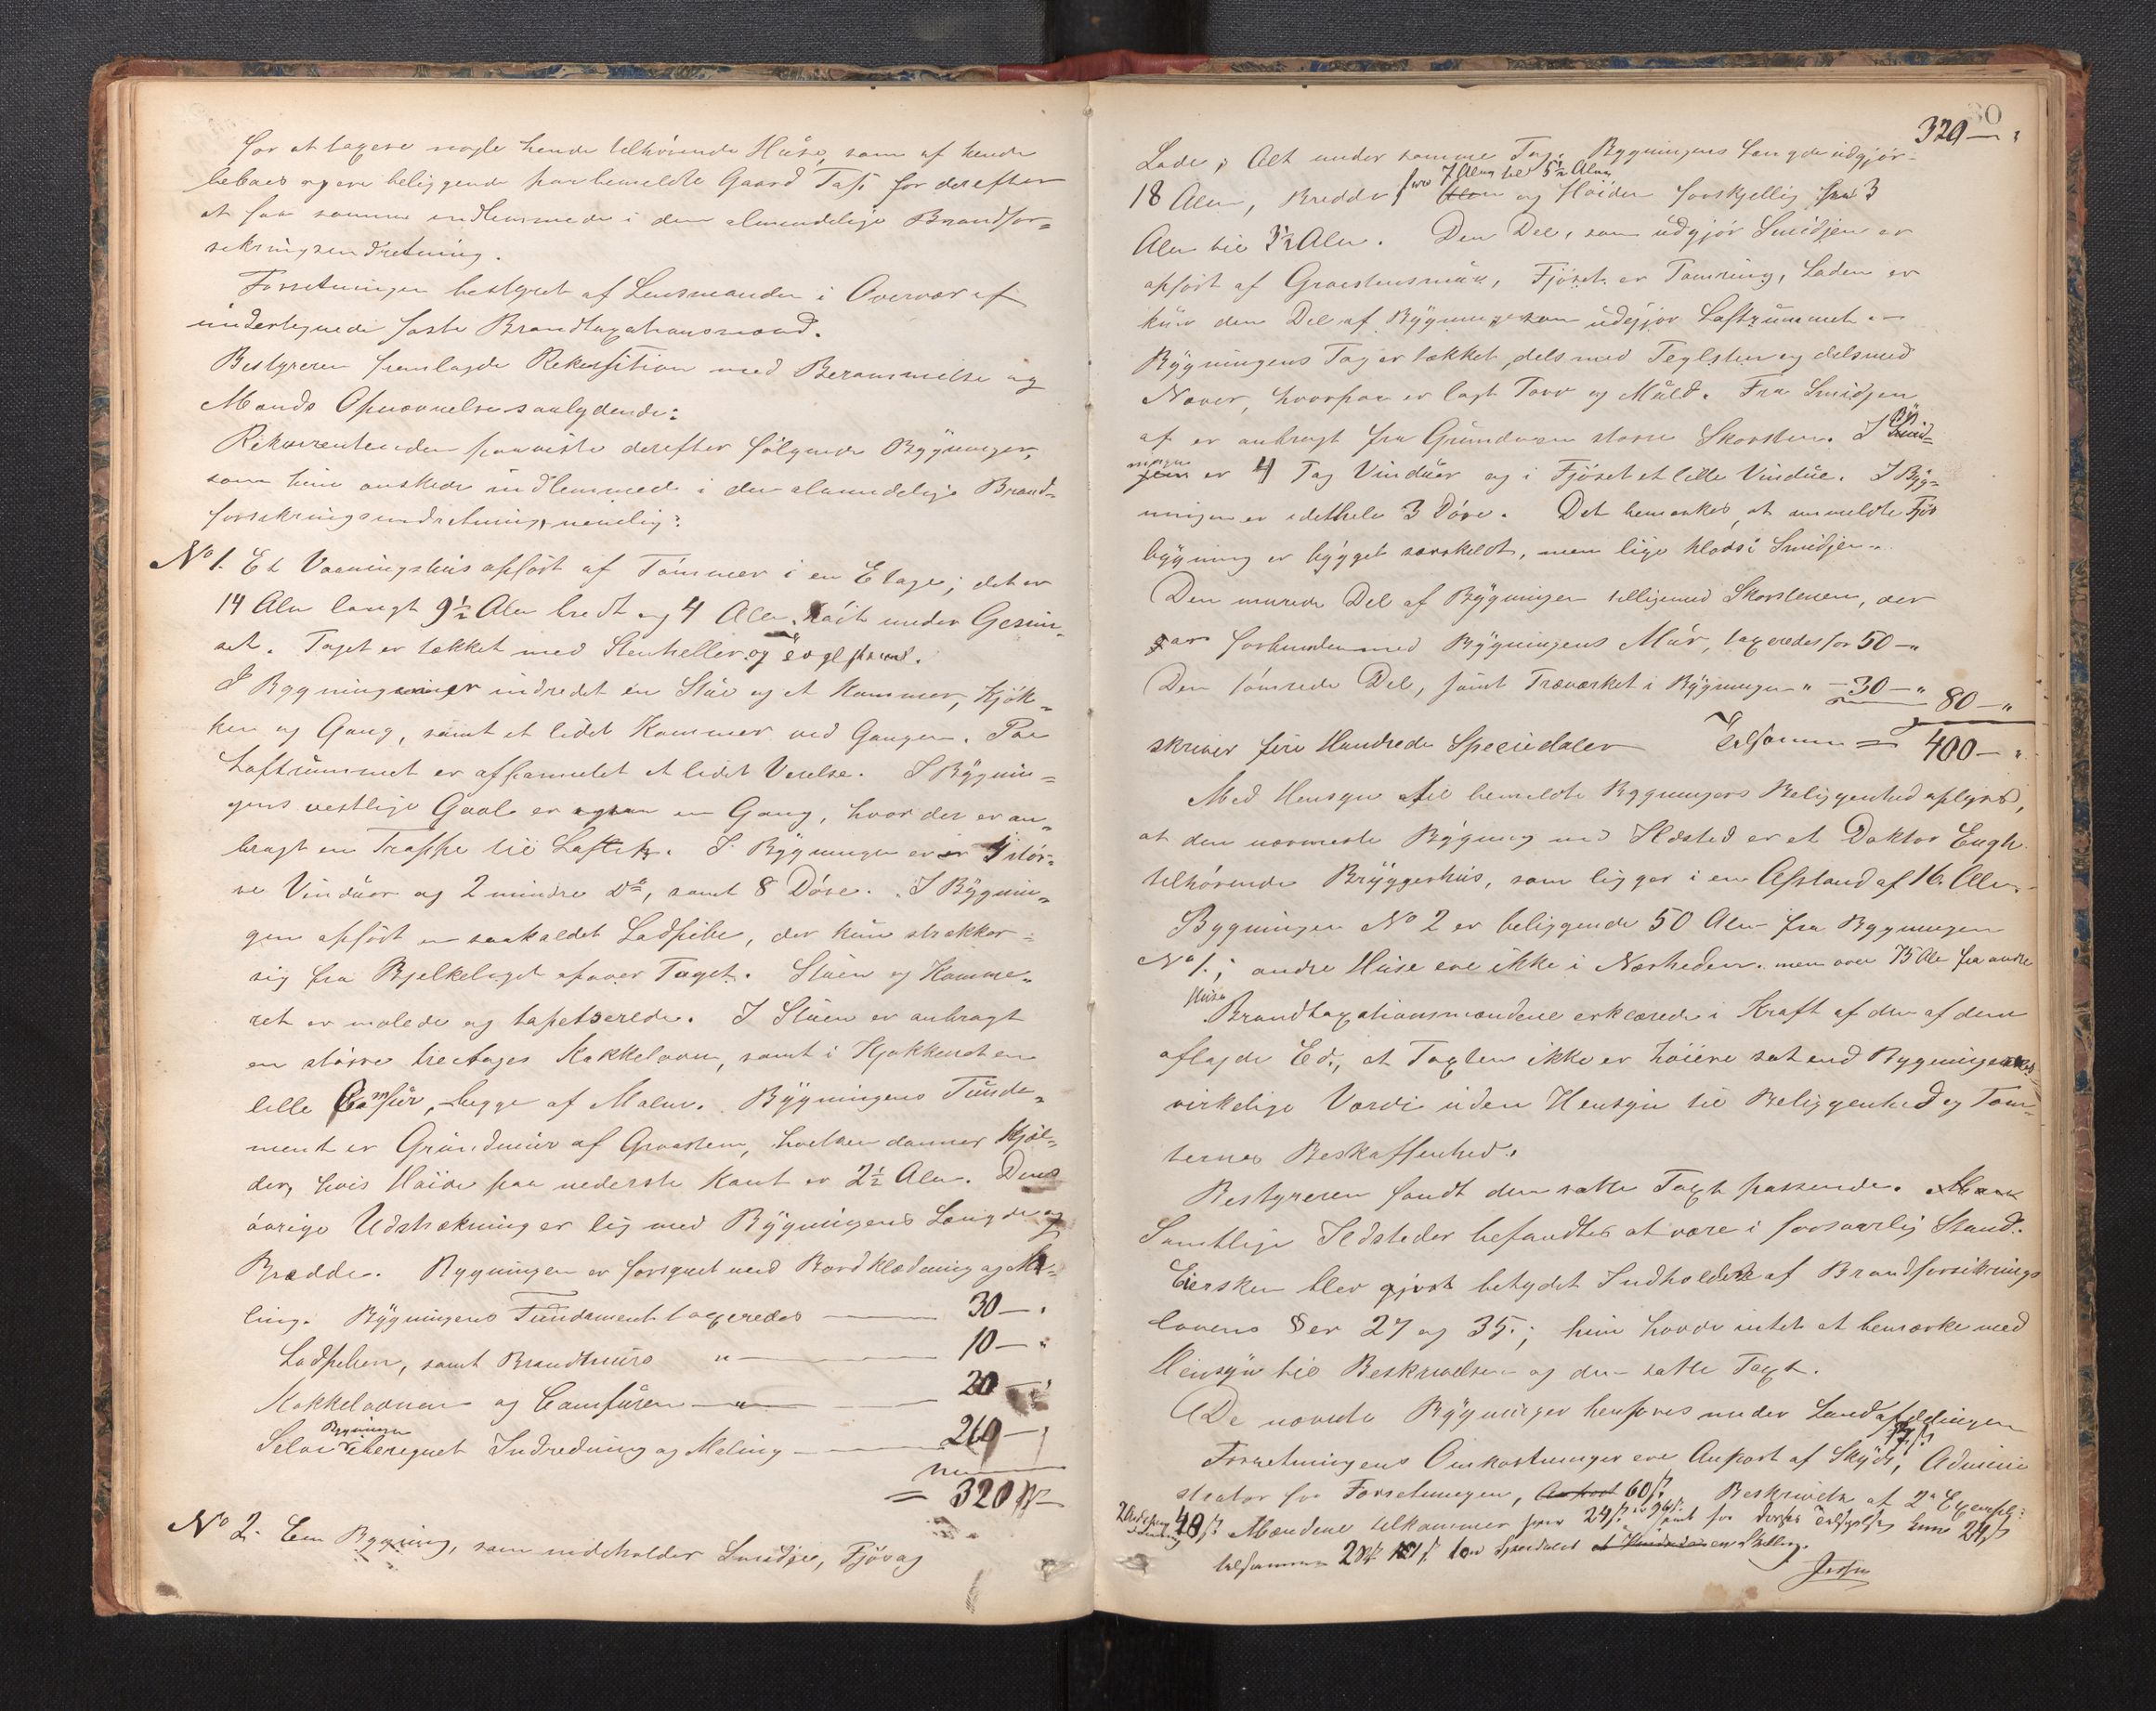 for at taxere nogle hende tilhörende Huse, som af hende
beboes og ere beliggende paa bemeldte Gaard for derefter
at faa samme indlemmede i den almindelige Brandfor=
sikringsindretning.
Forretningen bestyret af Lensmanden i Overvær af
undertegnede faste Brandtaxationsmænd.
Bestyreren fremlagde Rekvisition med Berammelse og
Mænds Opnævnelse saalydende:
Rekvirentinden paaviste derefter fölgende Bygninger,
som hun önskede indlemmed i den almindelige Brand=
forsikringsindretning, nemlig:
No 1. Et Vaaningshus opfört af Tömmer i en Etage; det er
14 Alen langt 9½ Alen bredt og 4 Alen höit under Gesim=
set. Taget er tækket med Stenheller og
I Bygningen er indredet en Stue og et Kammer, Kjök=
ken og Gang, samt et lidet Kammer ved Gangen. Paa
Loftrummet er afpanelet et lidet Værelse. I Bygnin=
gens vestlige Gavl er en Gang, hvor der er an=
bragt en Trappe til Loftet. I Bygningen er stör=
re Vinduer og 2 mindre do, samt 8 Döre. I Bygnin=
gen opfört en saakaldet Ladpibe, der kun strækker
sig fra Bjelkelaget opover Taget. Stuen og Kamme=
ret er malede og tapetserede. I Stuen er anbragt
en större treetages Kakkelovn, samt i Kjökkenet en
lille Comfur, begge af Malm. Bygningens Funda=
ment er Grundmur af Graasten, hvilken danner Kjæl=
der, hvis Höide paa nederste Kant er 2½ Alen. Dens
övrige Udstrækning er lig med Bygningens Længde og
Bredde. Bygningen er forsynet med Bordklædning og Ma=
ling. Bygningens Fundament taxeredes 30 —
Ladpiben, samt Brandmure " 10 — "
Kakkelovnen og Comfuren " 20 —
Selve Bygningen iberegnet Indredning og Maling 260 —
= 320
No 2. En Bygning, som indeholder Smidje, Fjös og
30
320 — "
Lade; Alt under samme Tag. Bygningens Længde udgjör
18 Alen, Bredde fra 7 Alen til 5½ Alen og Höiden forskjellig fra 3
Alen til 3½ Alen. Den Del, som udgjör Smidjen er
opfört af Graastensmur, Fjöset er Tömring, Laden er
kun den Del af Bygningen som udgjör Loftrummet.
Bygningens Tag er tækket dels med Teglsten og dels med
Næver, hvorpaa er lagt Torv og Muld. Fra Smidjen
af er anbragt fra Grunden en större Skorsten. I Byg=
ningen er 4 Fag Vinduer og i Fjöset et lille Vindue. I Byg=
ningen er idethele 3 Döre. Det bemærkes, at anmeldte Fjös
bygning er bygget særskildt, men lige klods i Smidjen.
Den murede Del af Bygningen tilligemed Skorstenen, der
var forbunden med Bygningens Mur, taxeredes for 50 — "
Den tömrede Del, samt Træværket i Bygningen " — 30 — " 80 — "
skriver fire Hundrede Speciedaler Tilsammen = 400 — "
Med Hensyn til bemeldte Bygningers Beliggenhed oplyses,
at den nærmeste Bygning med Ildsted er et Doktor Engh
tilhörende Bryggerhus, som ligger i en Afstand af 16 Alen.
Bygningen No 2 er beliggende 50 Alen fra Bygningen
No 1.; andre Huse ere ikke i Nærheden. men over 75 Alen fra andre
Huse
Brandtaxationsmændene erklærede i Kraft af den af dem
aflagde Ed, at Taxten ikke er höiere sat end Bygningernes
virkelige Værdi uden Hensyn til Beliggenhed og Tom=
ternes Beskaffenhed.
Bestyreren fandt den satte Taxt passende.
Samtlige Ildsteder befandtes at være i forsvarlig Stand.
Eiersken blev gjort betydet Indholdet af Brandforsikrings
lovens §er 27 og 35.; hun havde intet at bemærke med
Hensyn til Beskrivelsen og den satte Taxt.
De nævnte Bygninger henföres under Landafdelingen
Forretningens Omkostninger ere Anpart af Skyds, Admini
strator for Forretningen, 60 ß. Beskrivelse af 2 Exempl:
48 ß. Mændene tilkommer hver 24 ß er 96 ß. samt for deres 24 ß
tilsammen to Speciedaler en Skilling.